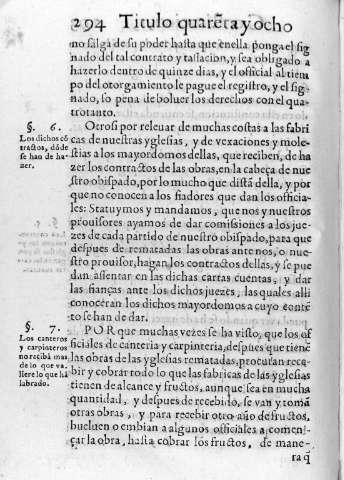 294 Titulo quarẽta y ocho
no salga de su poder hasta que enella ponga el sig
nado del tal contrato y tassacion, y sea obligado a
hazerlo dentro de quinze dias, y el official al tiem
po del otorgamiento le pague el registro, y el sig
nado, so pena de boluer los derechos con el qua-
trotanto.
§. 6.
Los dichos cõ
tractos, dõde
se han de ha-
zer.
Otrosi por releuar de muchas costas a las fabri
cas de nuestras yglesias, y de vexaciones y mole-
stias a los mayordomos dellas, que reciben, de ha
zer los contractos de las obras, en la cabeça de nue
stro obispado, por lo mucho que dista della, y por
que no conocen a los fiadores que dan los officia-
les: Statuymos y mandamos, que nos y nuestros
prouisores ayamos de dar comisiones a los jue-
zes de cada partido de nuestro obispado, para que
despues de rematadas las obras ante nos, o nue-
stro prouisor, hagan los contractos dellas, y se pue
dan assentar en las dichas cartas cuentas, y dar
las fianças ante los dichos juezes, las quales alli
conoceran los dichos mayordomos a cuyo conte
to se han de dar.
§. 7.
Los canteros
y carpinteros
no recibã mas
de lo que va-
liere lo que hã
labrado.
POR que muchas vezes se ha visto, que los of
ficiales de canteria y carpinteria, despues que tienē
las obras de las yglesias rematadas, procuran reca
bir y cobrar rodo lo que las fabricas de las yglesias
tienen de alcance y fructos, aunque sea en mucha
quantidad, y despues de recebido, se van y tomã
otras obras, y para recebir otro año de fructos,
bueluen o embian a algunos officiales a comen-
çar la obra, hasta cobrar los fructos, de mane-
ra q̃